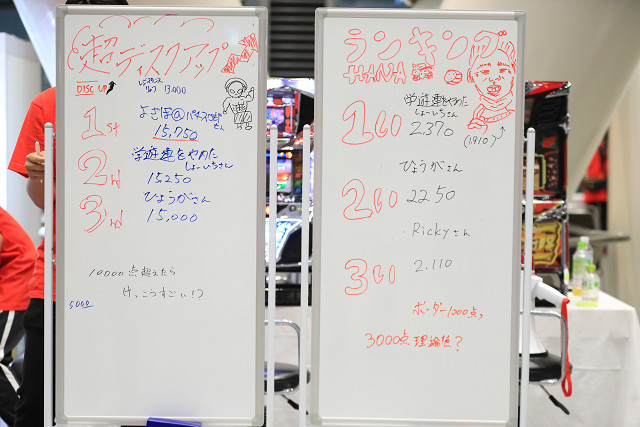 超ディスクアップ
DISC UP
13,000
1st
よさほ@パチスロ
さん
15,750
2nd
学遊連をやめた
しょーいちさん
15250
3rd
ひょうがさん
15,000
10000点超えたら
けっこうすごい!?
5000
ランキング
HANA
1い
学遊連をやめた
しょーいちさん
2.370
(1910)
2い
ひょうがさん
2250
3い
Rickyさん
2.110
ボーダー1000点、
3000点 理論値?